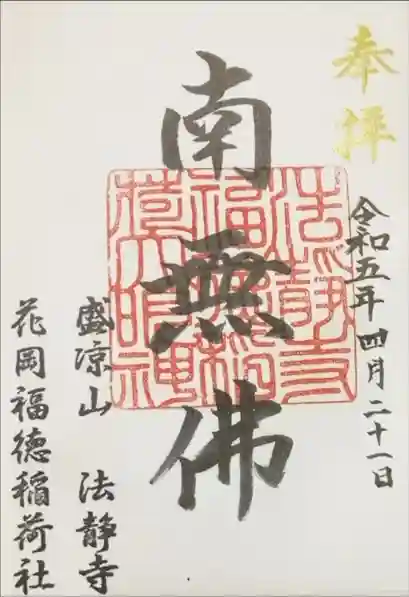 奉拝
令和五年 四月二十一日
南無佛
法静寺
福徳稲
荷大明神
盛涼山 法静寺
花岡福徳稲荷社